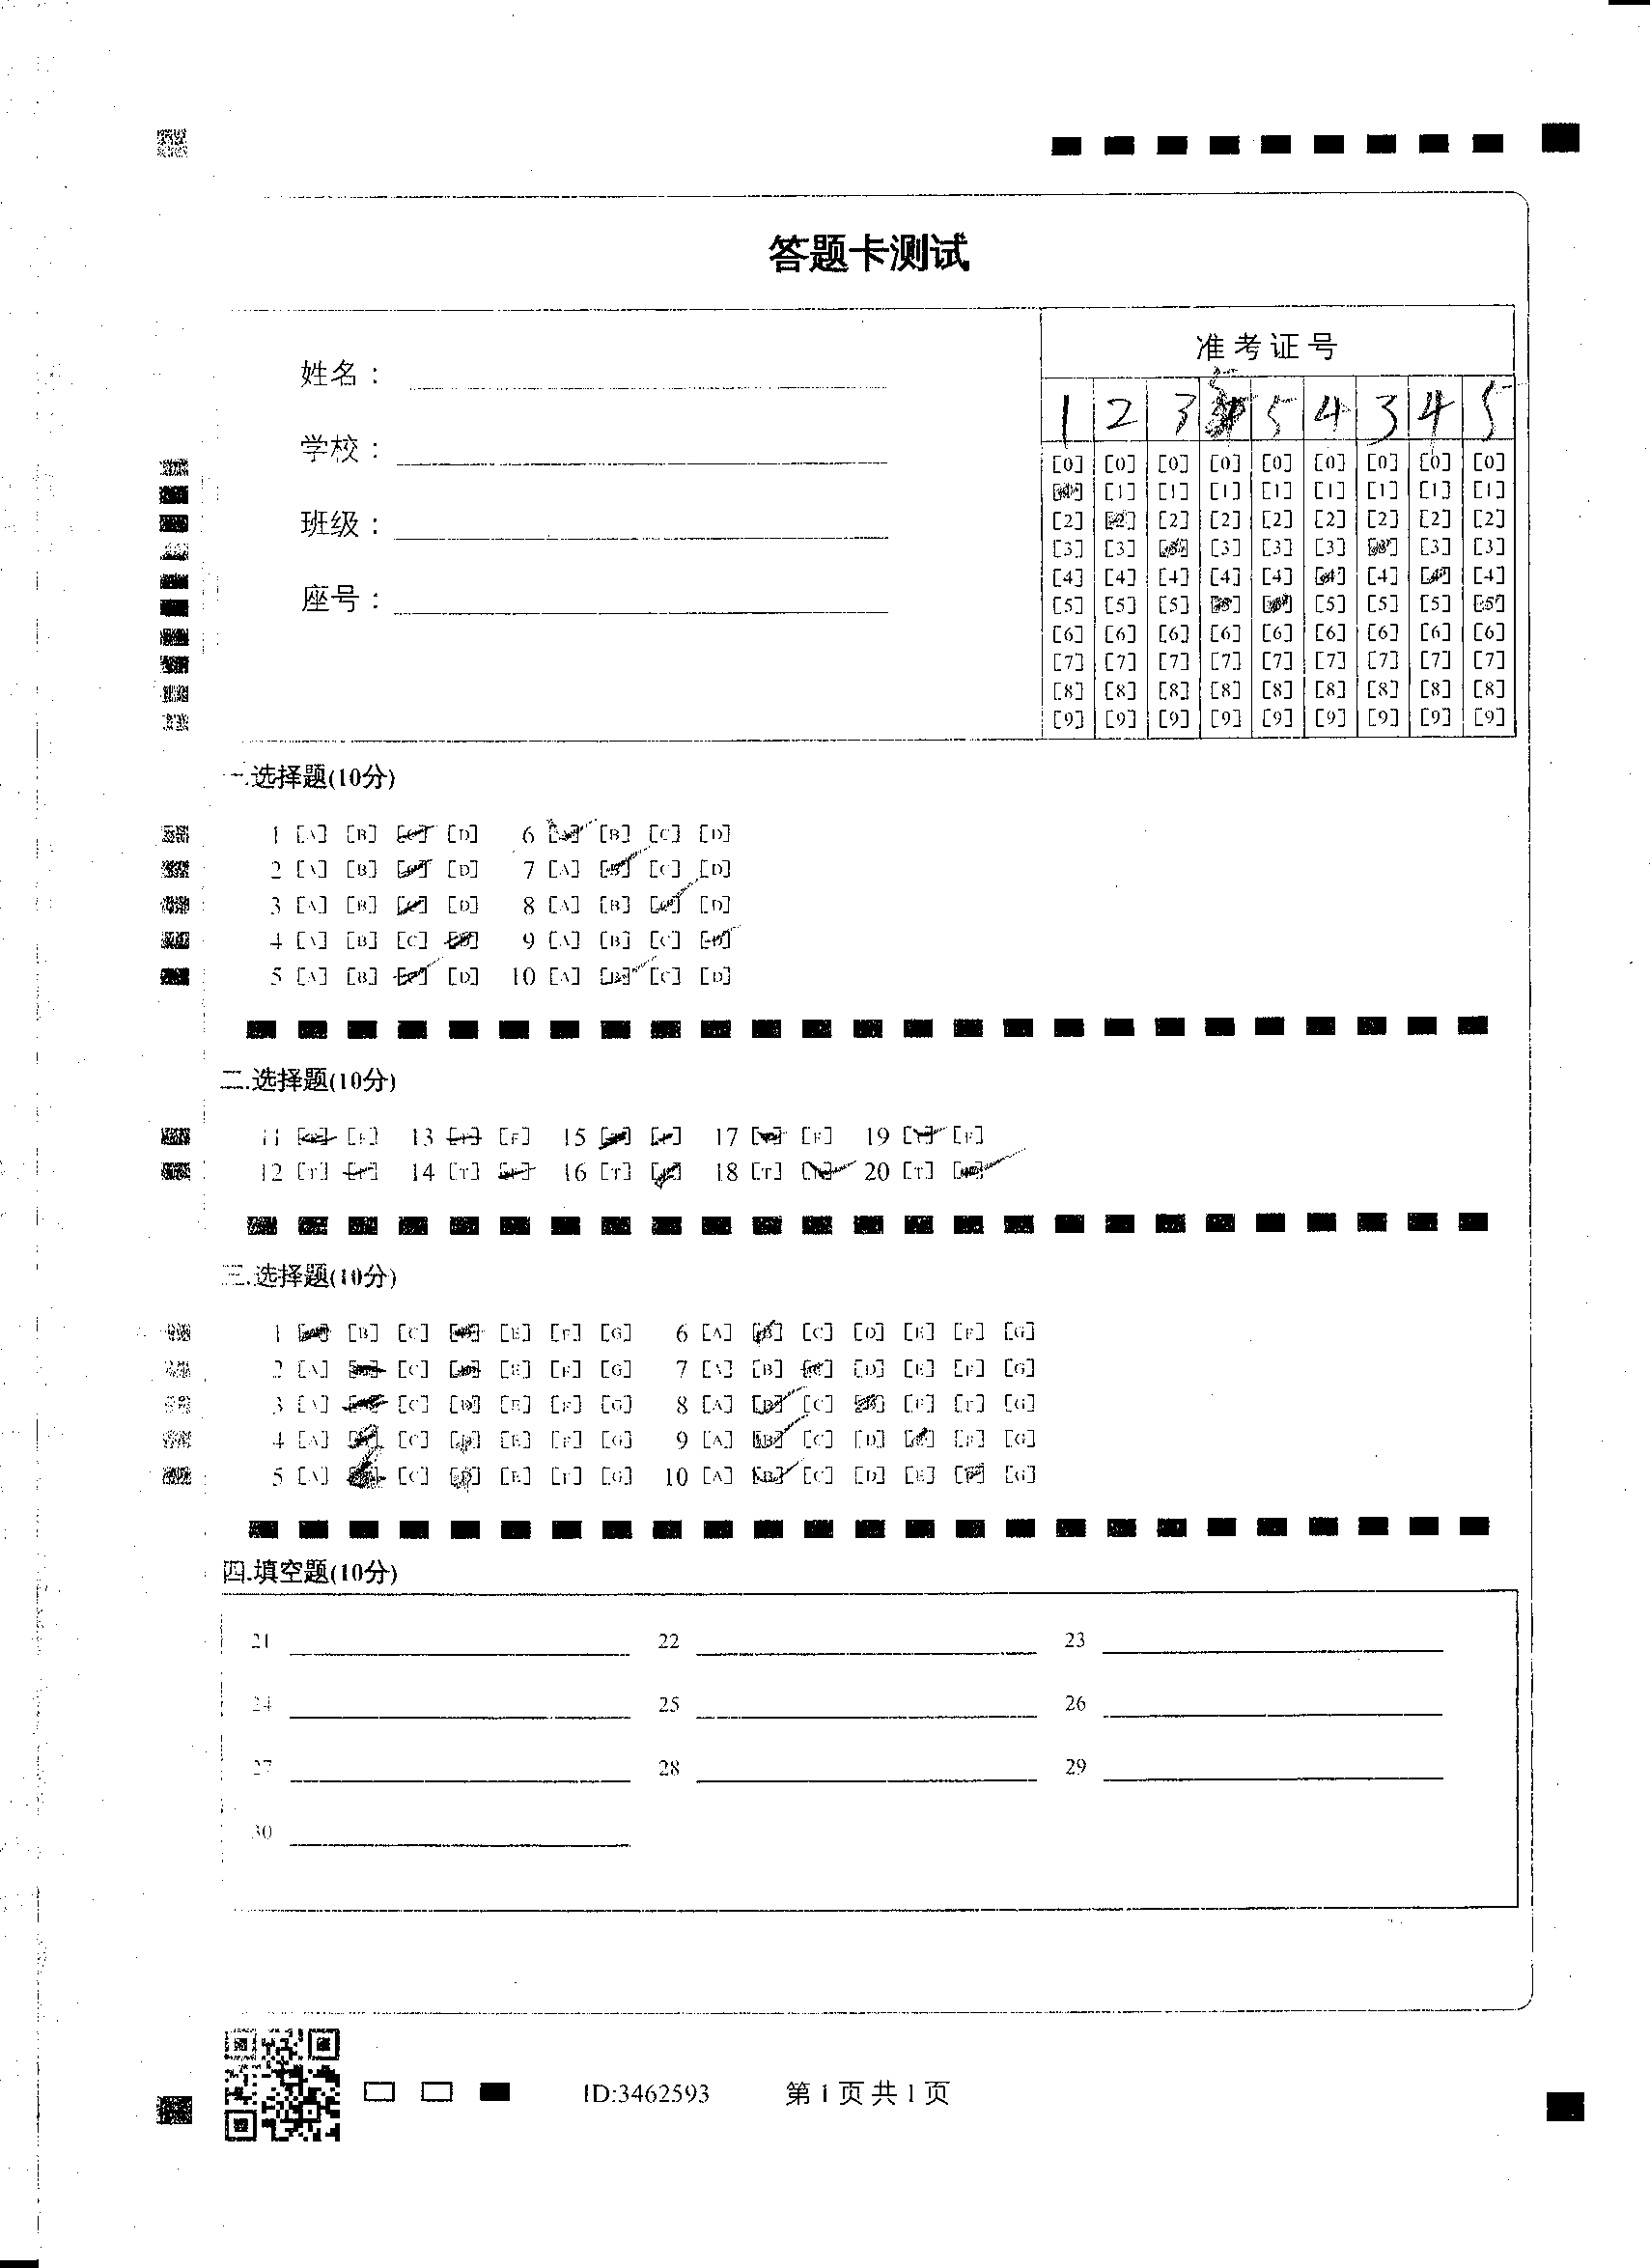 答题卡测试
准考证号
姓名：
1 2 3 5 4 3 4 5
学校：
班级：
座号：
[0] [0] [0] [0] [0] [0] [0] [0] [0]
[1] [1] [1] [1] [1] [1] [1] [1]
[2] [2] [2] [2] [2] [2] [2] [2]
[3] [3] [3] [3] [3] [3] [3]
[4] [4] [4] [4] [4] [4] [4]
[5] [5] [5] [5] [5] [5] [5]
[6] [6] [6] [6] [6] [6] [6] [6] [6]
[7] [7] [7] [7] [7] [7] [7] [7] [7]
[8] [8] [8] [8] [8] [8] [8] [8] [8]
[9] [9] [9] [9] [9] [9] [9] [9] [9]
一.选择题(10分)
1 [A] [B] [D] 6 [B] [C] [D]
2 [A] [B] [D] 7 [A] [C] [D]
3 [A] [B] [D] 8 [A] [B] [D]
4 [A] [B] [C] 9 [A] [B] [C]
5 [A] [B] [D] 10 [A] [C] [D]
二.选择题(10分)
11 [F] 13 [F] 15 17 [F] 19 [F]
12 [T] 14 [T] 16 [T] 18 [T] 20 [T]
三.选择题(10分)
1 [B] [C] [E] [F] [G] 6 [A] [C] [D] [E] [F] [G]
2 [A] [C] [E] [F] [G] 7 [A] [B] [D] [E] [F] [G]
3 [A] [C] [D] [E] [F] [G] 8 [A] [C] [E] [F] [G]
4 [A] [C] [E] [F] [G] 9 [A] [C] [D] [F] [G]
5 [A] [C] [D] [E] [F] [G] 10 [A] [B] [C] [D] [E] [F] [G]
四.填空题(10分)
21 22 23
24 25 26
27 28 29
30
ID:3462593 第1页共1页